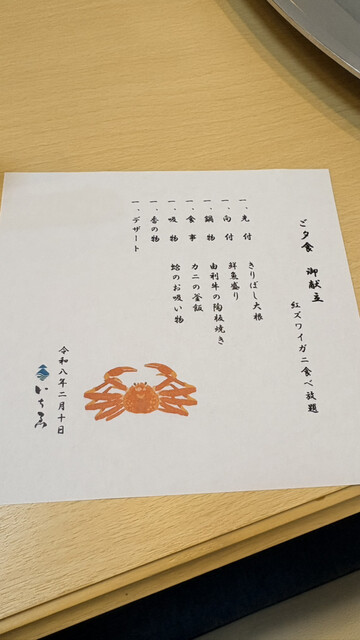 ご夕食 御献立
紅ズワイガニ食べ放題
一、先付 きりぼし大根
一、向付 鮮魚盛り
一、鍋物 由利牛の陶板焼き
一、食事 カニの釜飯
一、吸物 蛤のお吸い物
一、香の物
一、デザート
令和八年二月十日